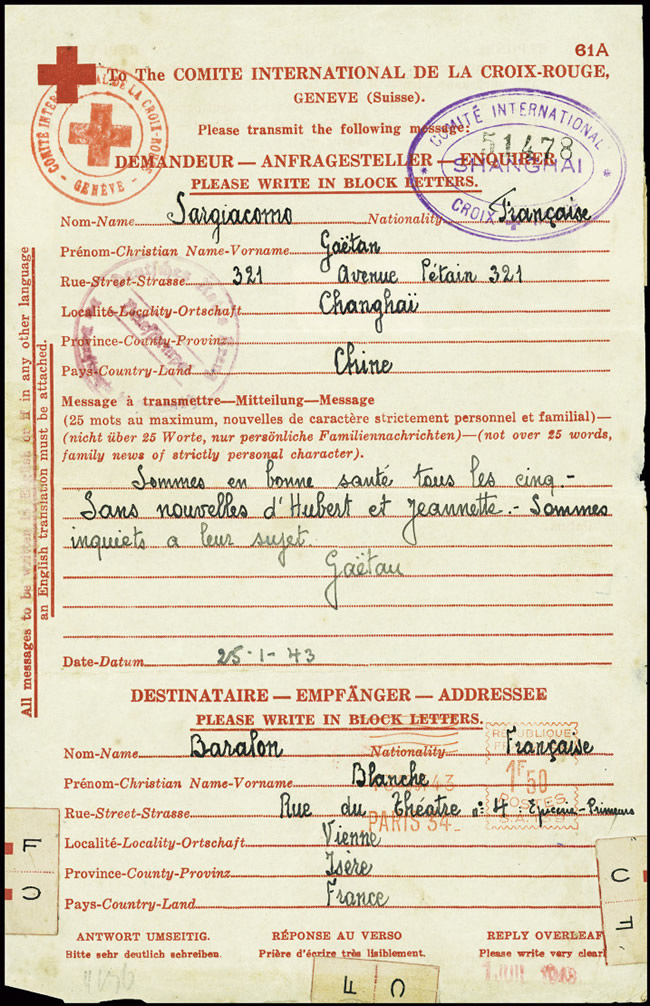 61A
To The COMITE INTERNATIONAL DE LA CROIX-ROUGE,
GENEVE (Suisse).
Please transmit the following message:
COMITÉ INTERNATIONAL DE LA CROIX-ROUGE
— GENÈVE —
COMITÉ INTERNATIONAL
51478
SHANGHAI
CROIX
DEMANDEUR — ANFRAGESTELLER — ENQUIRER
PLEASE WRITE IN BLOCK LETTERS.
Nom-Name Sargiacomo Nationality Française
Prénom-Christian Name-Vorname Gaëtan
Rue-Street-Strasse 321 Avenue Pétain 321
Localité-Locality-Ortschaft Changhaï
Province-County-Provinz
Pays-Country-Land Chine
Message à transmettre—Mitteilung—Message
(25 mots au maximum, nouvelles de caractère strictement personnel et familial)—
(nicht über 25 Worte, nur persönliche Familiennachrichten)—(not over 25 words,
family news of strictly personal character).
Sommes en bonne santé tous les cinq.-
Sans nouvelles d'Hubert et Jeannette.- Sommes
inquiets a leur sujet.
Gaëtan
Date-Datum 25-1-43
All messages to be written in English or if in any other language
an English translation must be attached.
DESTINATAIRE — EMPFÄNGER — ADDRESSEE
PLEASE WRITE IN BLOCK LETTERS.
Nom-Name Baralon Nationality Française
Prénom-Christian Name-Vorname Blanche
Rue-Street-Strasse Rue du Théâtre n° 4 : Epicerie-Primeurs
Localité-Locality-Ortschaft Vienne
Province-County-Provinz Isère
Pays-Country-Land France
REPUBLIQUE
1F50
POSTES
43
PARIS 34
ANTWORT UMSEITIG. RÉPONSE AU VERSO REPLY OVERLEAF
Bitte sehr deutlich schreiben. Prière d'écrire très lisiblement. Please write very clearl